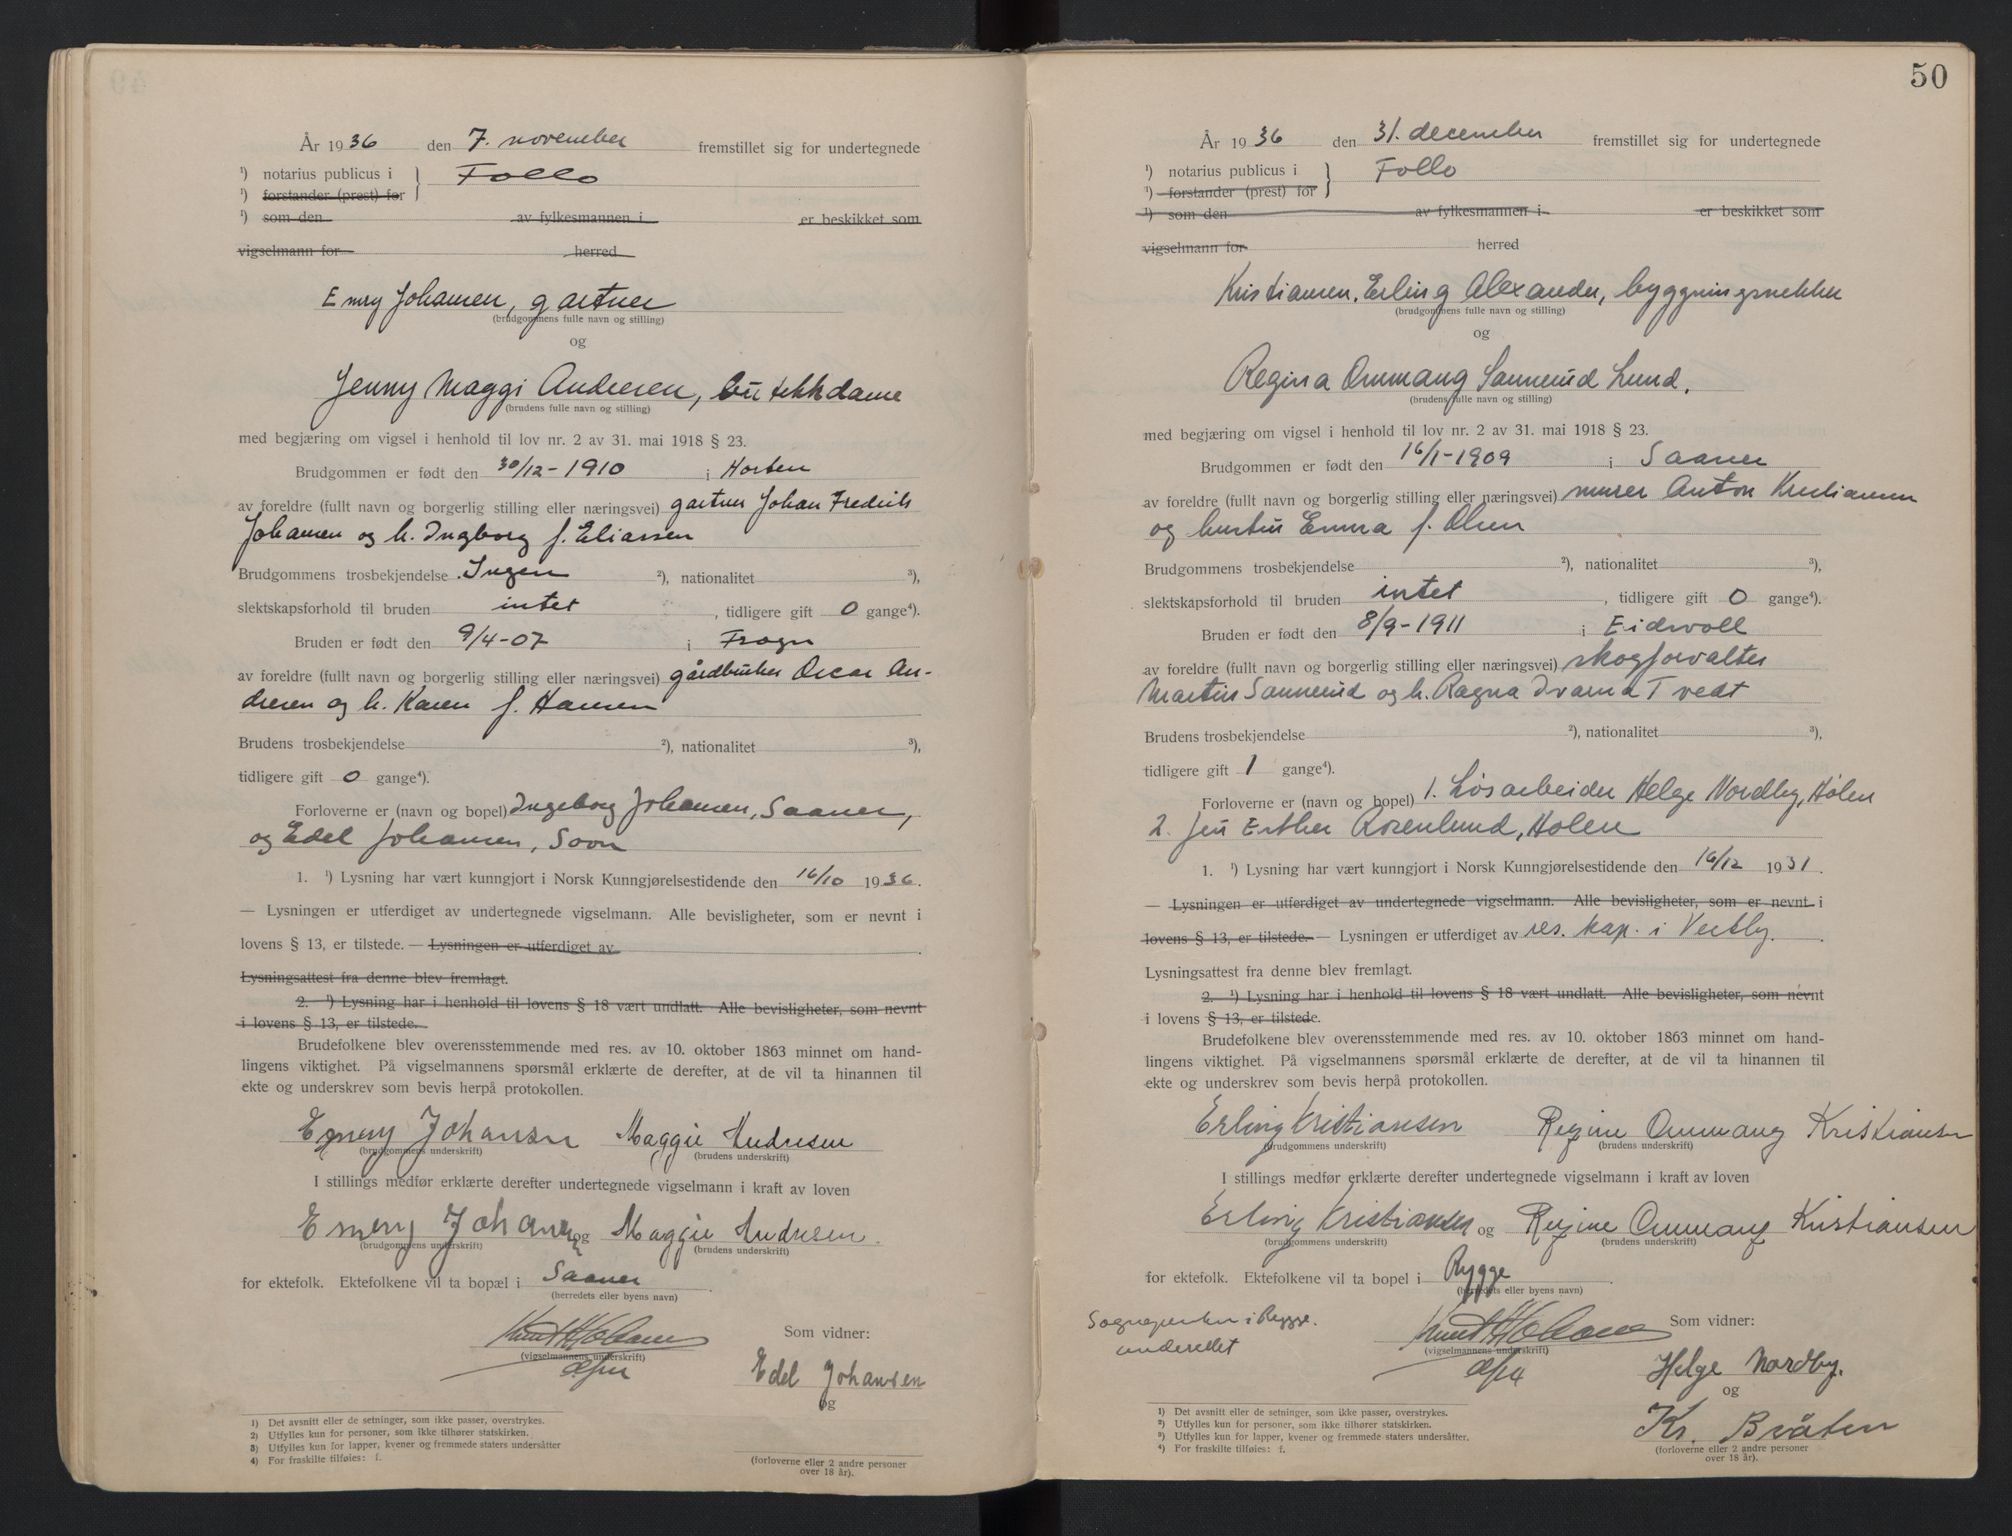 År 1936 den 7. november fremstillet sig for undertegnede
¹) notarius publicus i } Follo
¹) forstander (prest) for
¹) som den av fylkesmannen i er beskikket som
vigselmann for herred
Emry Johansen, gartner
(brudgommens fulle navn og stilling)
og
Jenny Maggi Andresen, butikkdame
(brudens fulle navn og stilling)
med begjæring om vigsel i henhold til lov nr. 2 av 31. mai 1918 § 23.
Brudgommen er født den 30/12-1910 i Horten
av foreldre (fullt navn og borgerlig stilling eller næringsvei) gartner Johan Fredrik
Johansen og h. Ingborg f. Eliassen
Brudgommens trosbekjendelse Ingen ²), nationalitet ³),
slektskapsforhold til bruden intet , tidligere gift 0 gange⁴).
Bruden er født den 9/4-07 i Frogn
av foreldre (fullt navn og borgerlig stilling eller næringsvei) gårdbruker Oscar An-
dresen og h. Karen f. Hansen
Brudens trosbekjendelse ²), nationalitet ³),
tidligere gift 0 gange⁴).
Forloverne er (navn og bopel) Ingeborg Johansen, Saaner,
og Edel Johansen, Soon
1. ¹) Lysning har vært kunngjort i Norsk Kunngjørelsestidende den 16/10 1936.
— Lysningen er utferdiget av undertegnede vigselmann. Alle bevisligheter, som er nevnt i
lovens § 13, er tilstede. — Lysningen er utferdiget av .
Lysningsattest fra denne blev fremlagt.
2. ¹) Lysning har i henhold til lovens § 18 vært undlatt. Alle bevisligheter, som nevnt
i lovens § 13, er tilstede.
Brudefolkene blev overensstemmende med res. av 10. oktober 1863 minnet om hand-
lingens viktighet. På vigselmannens spørsmål erklærte de derefter, at de vil ta hinannen til
ekte og underskrev som bevis herpå protokollen.
Emery Johansen Maggie Andresen
(brudgommens underskrift) (brudens underskrift)
I stillings medfør erklærte derefter undertegnede vigselmann i kraft av loven
Emery Johansen og Maggie Andresen.
(brudgommens underskrift) (brudens underskrift)
for ektefolk. Ektefolkene vil ta bopæl i Saaner .
(herredets eller byens navn)
Som vidner:
(vigselmannens underskrift)
Edel Johansen
og
1) Det avsnitt eller de setninger, som ikke passer, overstrykes.
2) Utfylles kun for personer, som ikke tilhører statskirken.
3) Utfylles kun for lapper, kvener og fremmede staters undersåtter
4) For fraskilte tilføies: f.
(forloverne eller 2 andre personer
over 18 år).
50
År 1936 den 31. december fremstillet sig for undertegnede
¹) notarius publicus i } Follo
¹) forstander (prest) for
¹) som den av fylkesmannen i er beskikket som
vigselmann for herred
Kristiansen, Erling Alexander, byggningsnekker
(brudgommens fulle navn og stilling)
og
Regina Ommang Sannerud Lund.
(brudens fulle navn og stilling)
med begjæring om vigsel i henhold til lov nr. 2 av 31. mai 1918 § 23.
Brudgommen er født den 16/1-1909 i Saaner
av foreldre (fullt navn og borgerlig stilling eller næringsvei) murer Anton Kristiansen
og hustru Emma f. Olsen
Brudgommens trosbekjendelse ²), nationalitet ³),
slektskapsforhold til bruden intet , tidligere gift 0 gange⁴).
Bruden er født den 8/9-1911 i Eidsvoll
av foreldre (fullt navn og borgerlig stilling eller næringsvei) skogforvalter
Martin Sannerud og h. Ragna Ivarna Tvedt
Brudens trosbekjendelse ²), nationalitet ³),
tidligere gift 1 gange⁴).
Forloverne er (navn og bopel) 1. Løsarbeider Helge Nordby, Hølen
2. Esther Rosenlund, Holen
1. ¹) Lysning har vært kunngjort i Norsk Kunngjørelsestidende den 16/12 1931.
— Lysningen er utferdiget av undertegnede vigselmann. Alle bevisligheter, som er nevnt i
lovens § 13, er tilstede. — Lysningen er utferdiget av res. kap. i Vestby.
Lysningsattest fra denne blev fremlagt.
2. ¹) Lysning har i henhold til lovens § 18 vært undlatt. Alle bevisligheter, som nevnt
i lovens § 13, er tilstede.
Brudefolkene blev overensstemmende med res. av 10. oktober 1863 minnet om hand-
lingens viktighet. På vigselmannens spørsmål erklærte de derefter, at de vil ta hinannen til
ekte og underskrev som bevis herpå protokollen.
Erling Kristiansen Regine Ommang Kristiansen
(brudgommens underskrift) (brudens underskrift)
I stillings medfør erklærte derefter undertegnede vigselmann i kraft av loven
Erling Kristiansen og Regine Ommang Kristiansen
(brudgommens underskrift) (brudens underskrift)
for ektefolk. Ektefolkene vil ta bopel i Rygge .
(herredets eller byens navn)
Sognepresten i Rygge.
underrettet
Som vidner:
(vigselmannens underskrift)
Helge Nordby.
og
Kr. Bråten
1) Det avsnitt eller de setninger, som ikke passer, overstrykes.
2) Utfylles kun for personer, som ikke tilhører statskirken.
3) Utfylles kun for lapper, kvener og fremmede staters undersåtter.
4) For fraskilte tilføies: f.
(forloverne eller 2 andre personer
over 18 år).